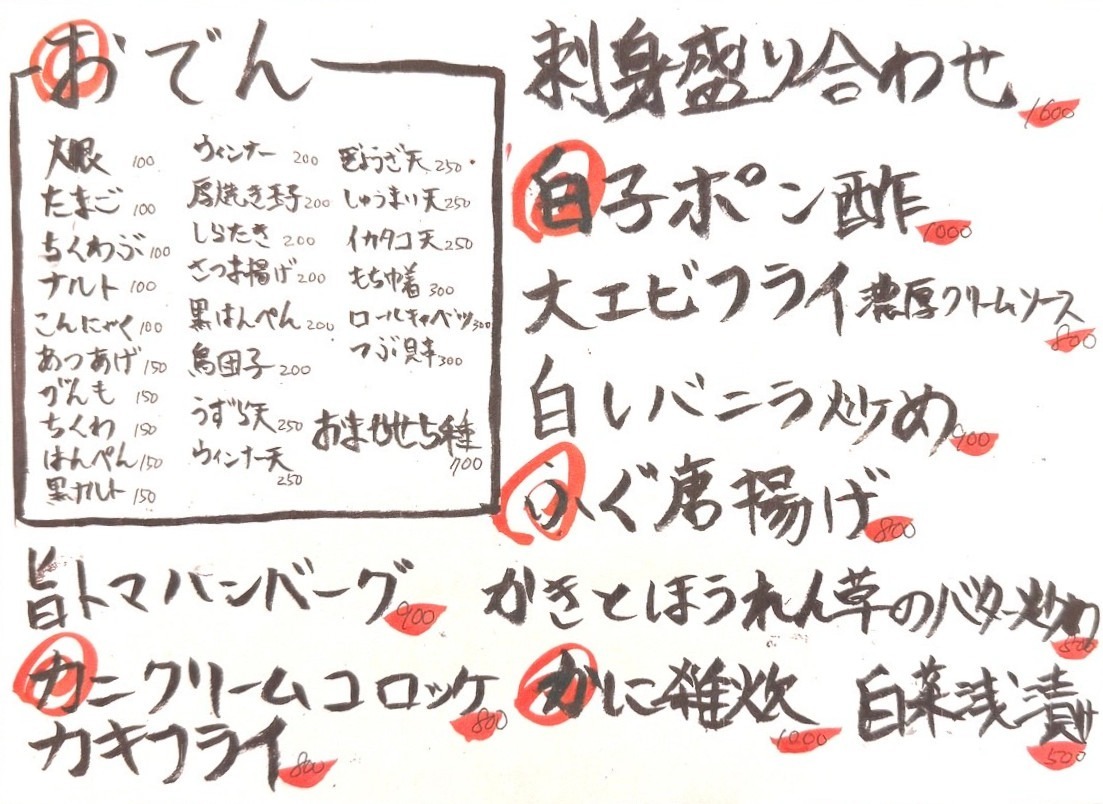 おでん
大根 100
たまご 100
ちくわぶ 100
ナルト 100
こんにゃく 100
あつあげ 150
がんも 150
ちくわ 150
はんぺん 150
黒ナルト 150
ウィンナー 200
厚焼き玉子 200
しらたき 200
さつま揚げ 200
黒はんぺん 200
鳥団子 200
うずら天 250
ウィンナー天 250
ぎょうざ天 250
しゅうまい天 250
イカタコ天 250
もち巾着 300
ロールキャベツ 300
つぶ貝串 300
おまかせ5種 700
刺身盛り合わせ 1600
白子ポン酢 1000
大エビフライ 濃厚クリームソース 800
白レバニラ炒め 900
ふぐ唐揚げ 800
旨トマハンバーグ 900
かきとほうれん草のバター炒め 800
カニクリームコロッケ 800
かに雑炊 1000
白菜浅漬け 500
カキフライ 800